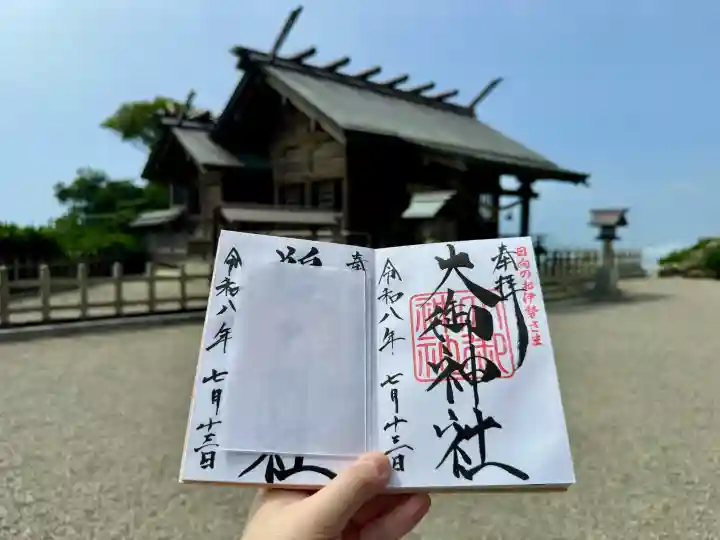 日向のお伊勢さま
奉拝
大御神社
令和八年 七月十三日
奉
社
令和八年 七月十三日